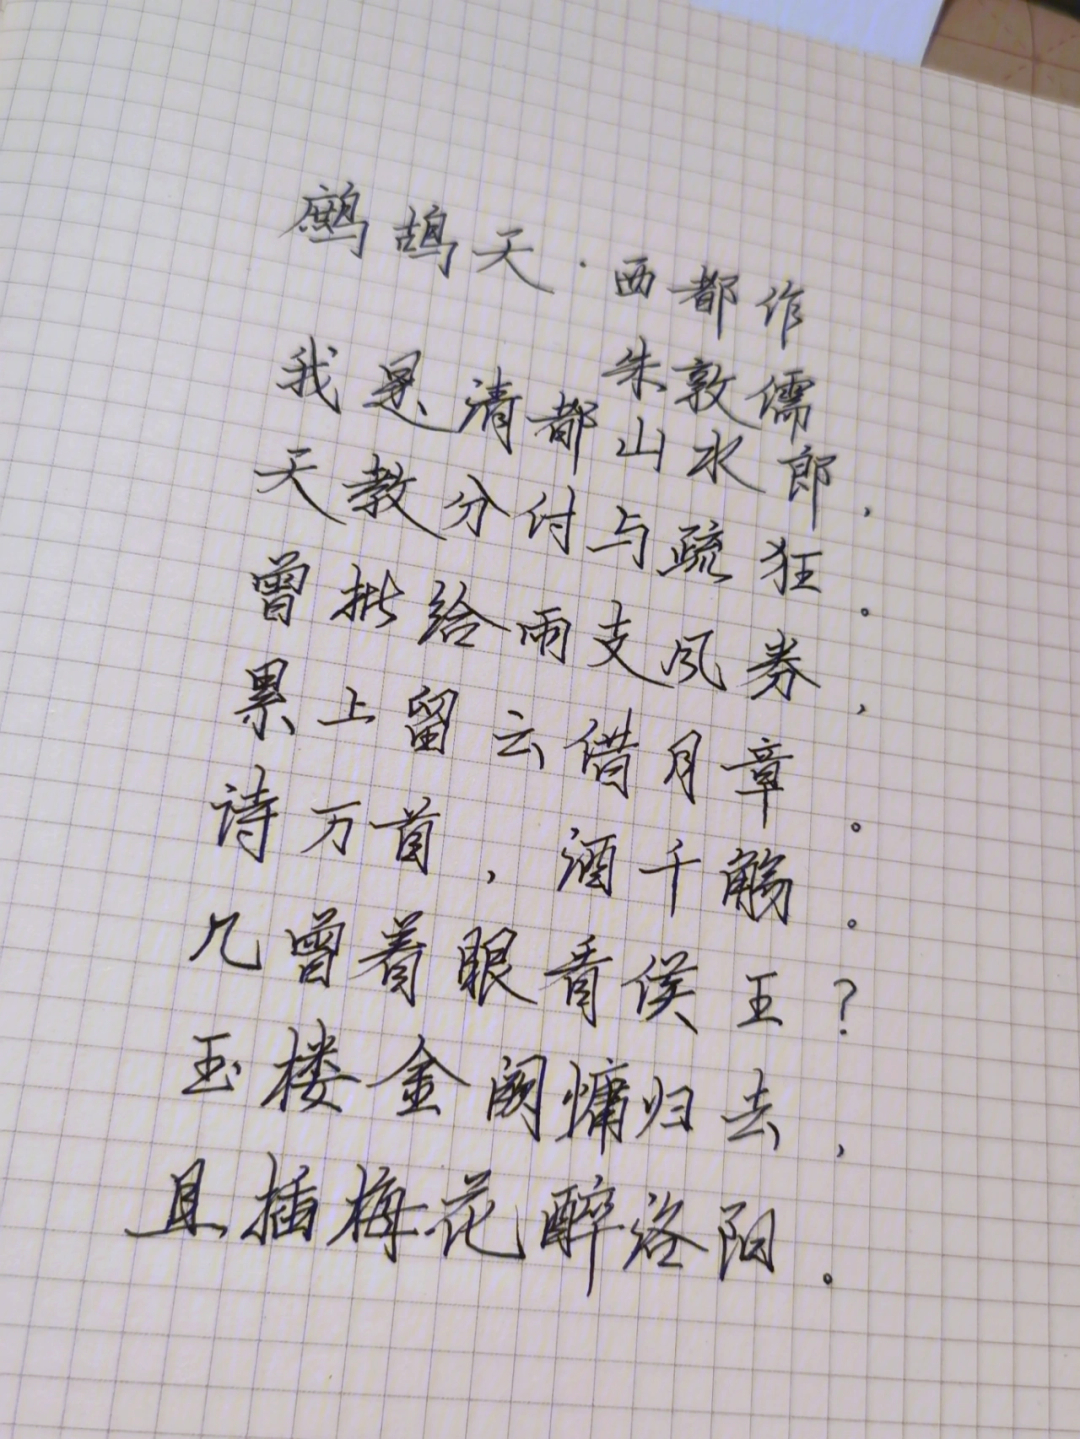 鹧鸪天·西都作
朱敦儒
我是清都山水郎，
天教分付与疏狂。
曾批给雨支风券，
累上留云借月章。
诗万首，酒千觞。
几曾着眼看侯王？
玉楼金阙慵归去，
且插梅花醉洛阳。